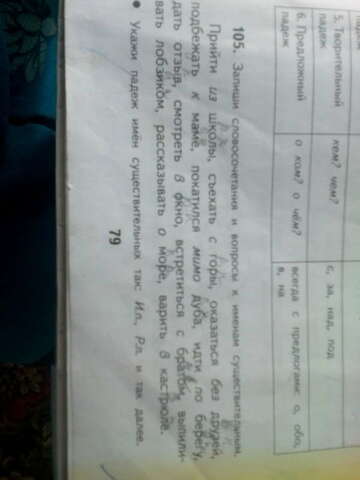 5. Творительный
падеж
кем? чем?
с, за, над, под
6. Предложный
падеж
о ком? о чём?
всегда с предлогами: о, обо,
в, на
105. Запиши словосочетания и вопросы к именам существительным.
Прийти из школы, съехать с горы, оказаться без друзей,
подбежать к маме, покатился мимо дуба, идти по берегу,
дать отзыв, смотреть в окно, встретиться с братом, выпили-
вать лобзиком, рассказывать о море, варить в кастрюле.
• Укажи падеж имён существительных так: И.п., Р.п. и так далее.
79